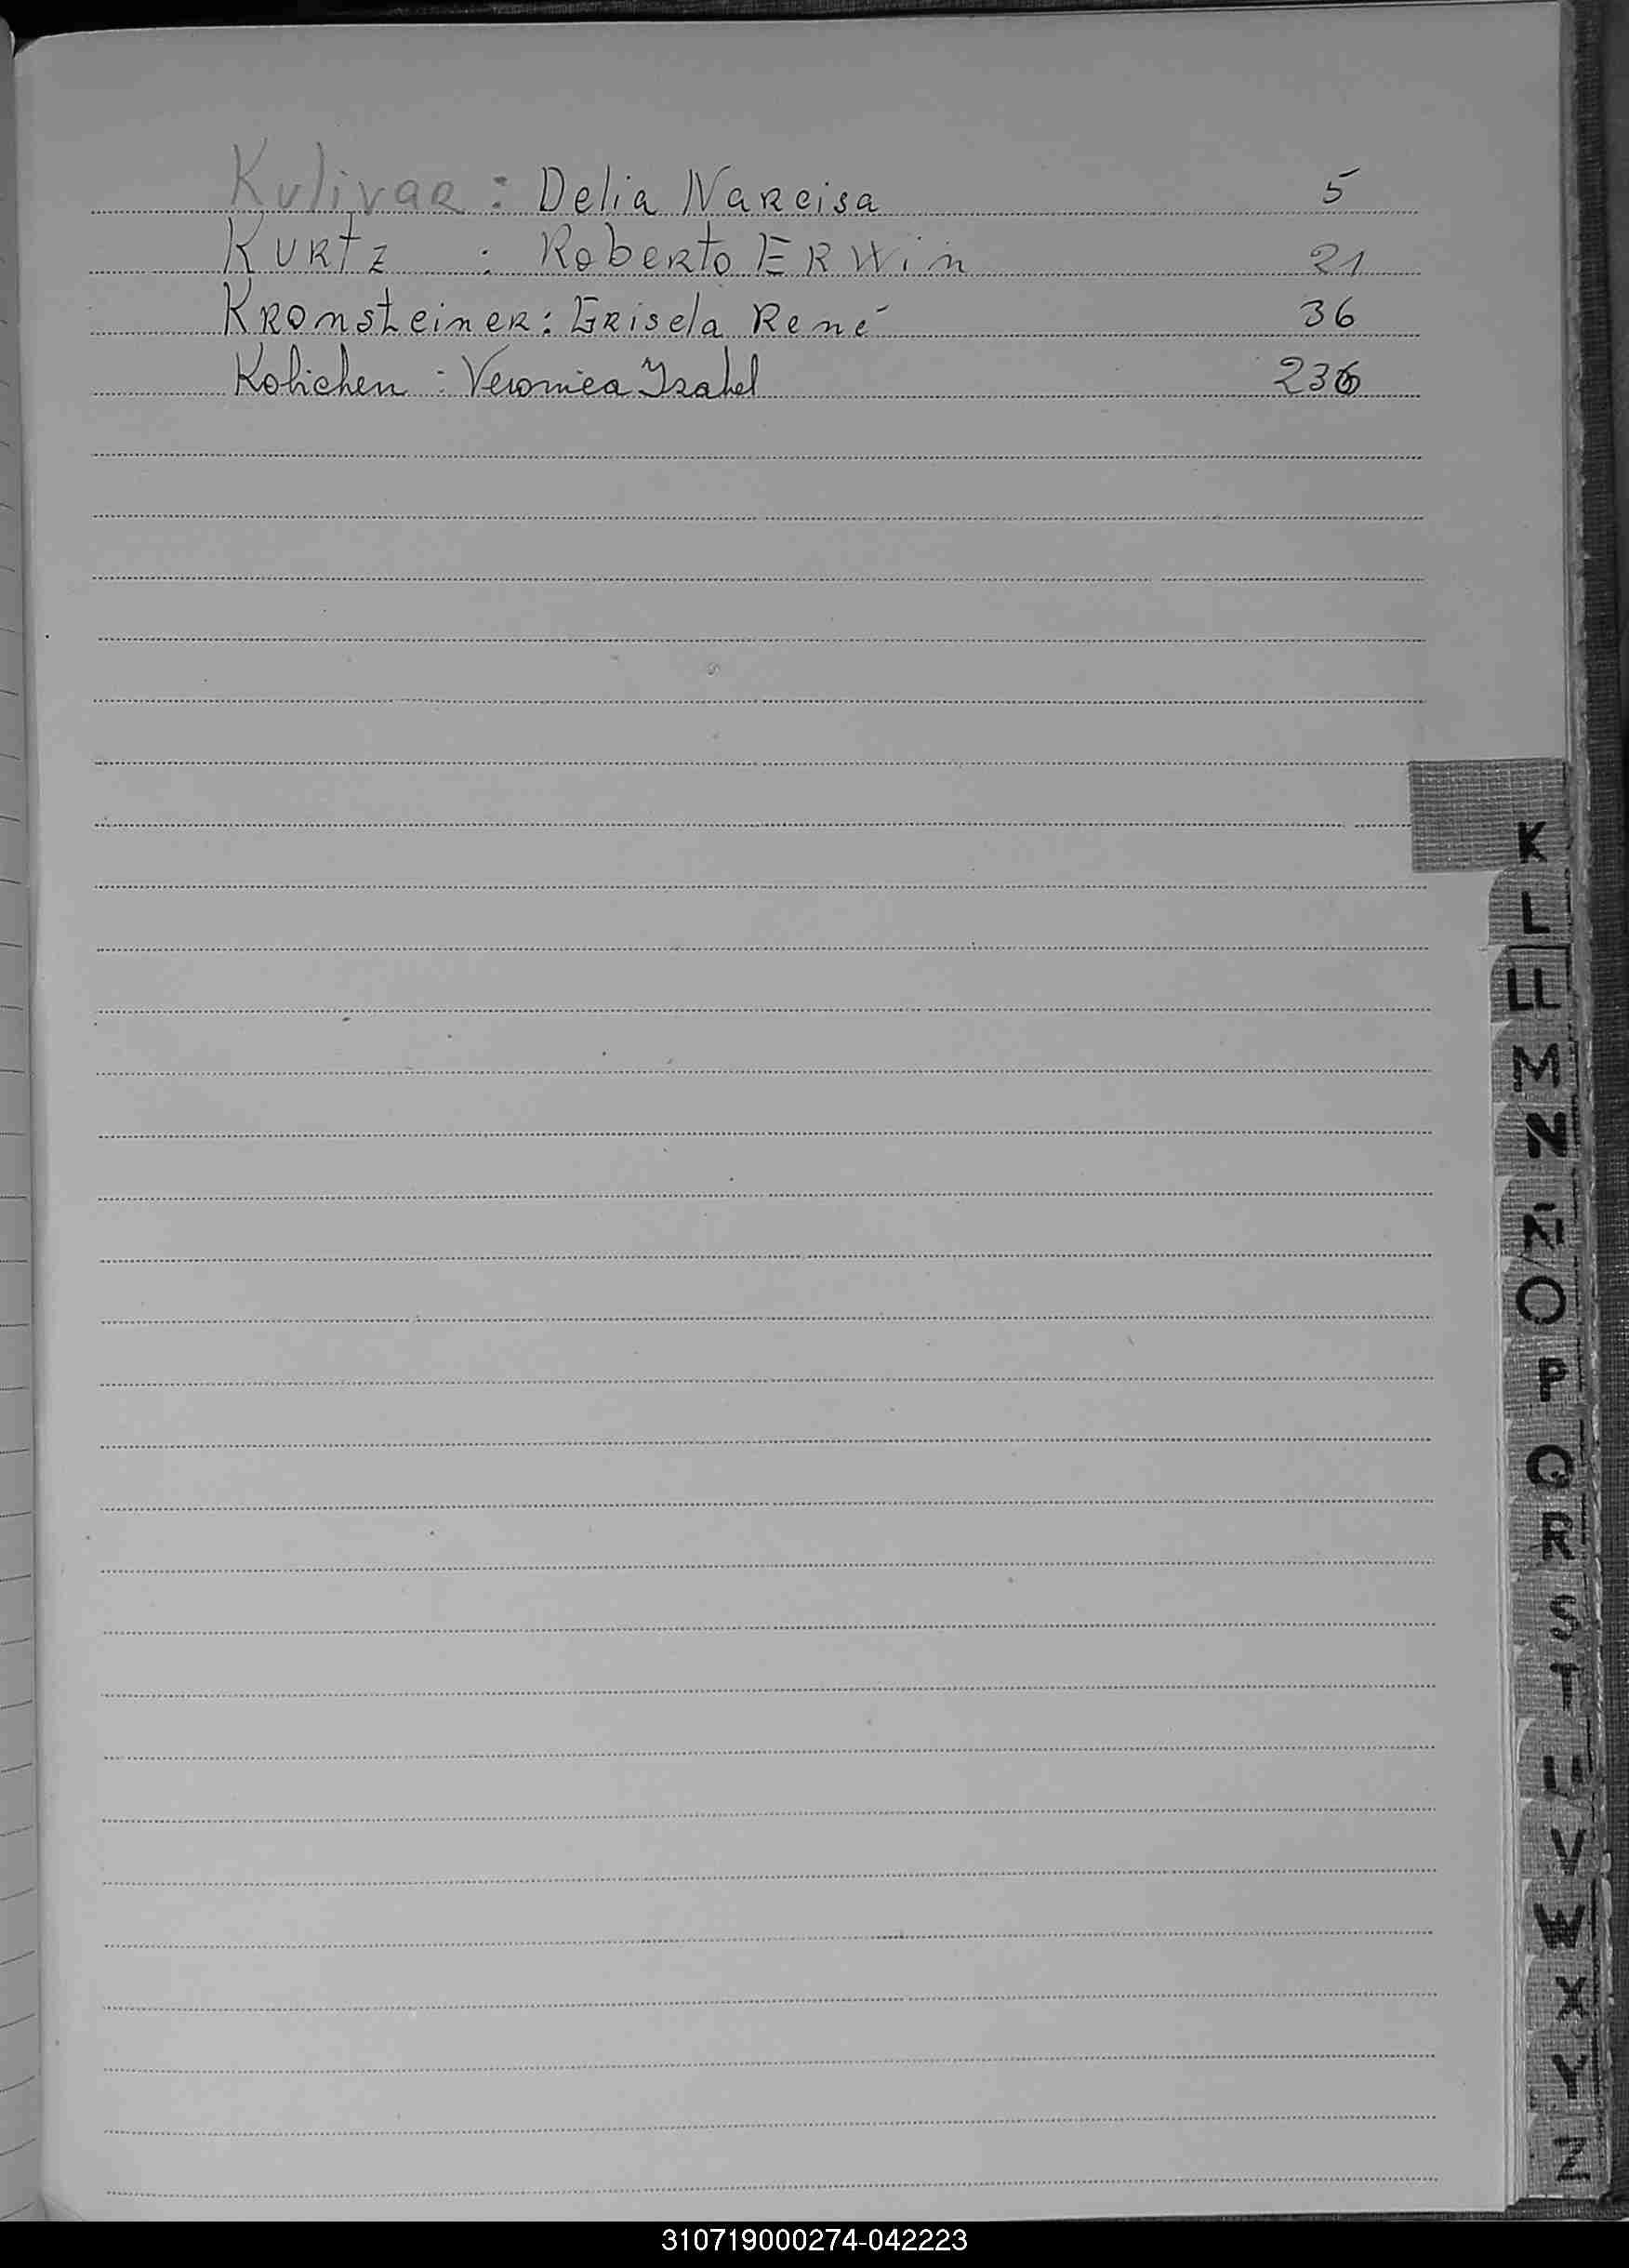 Kulivar : Delia Narcisa 5
Kurtz : Roberto ERWin 21
Kronsteiner : Grisela René 36
Kolichen : Veronica Ysabel 236
K
L
LL
M
N
Ñ
O
P
Q
R
S
T
U
V
W
X
Y
Z
310719000274-042223